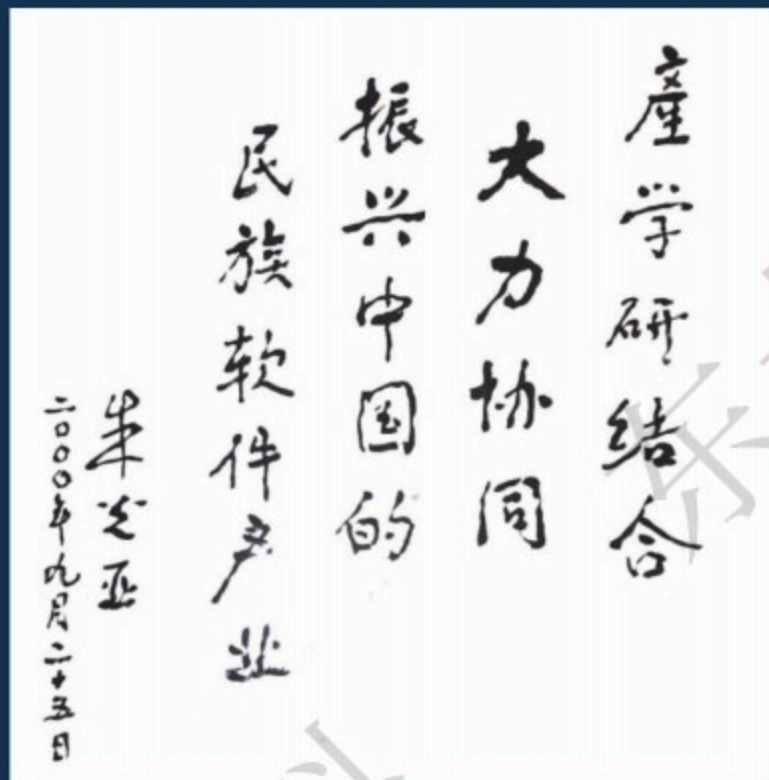 產学研结合
大力协同
振兴中国的
民族软件产业
朱光亚
二〇〇〇年九月二十五日